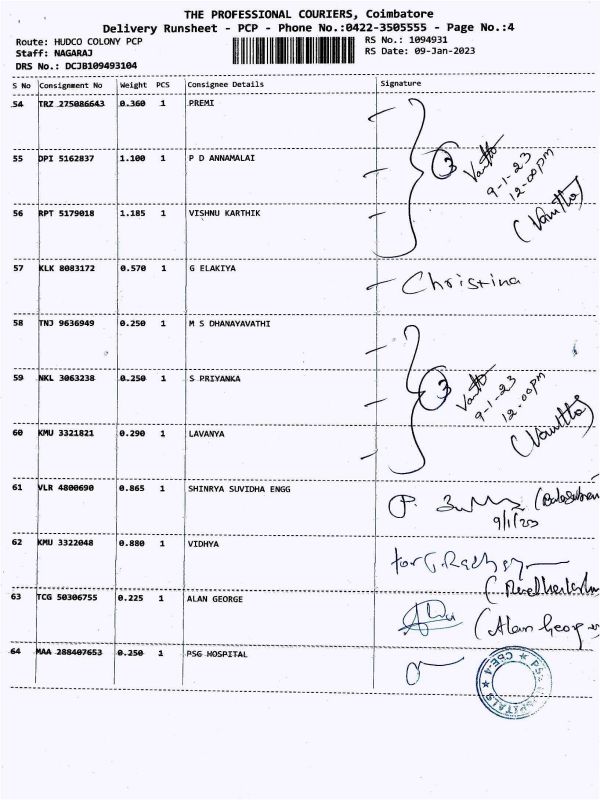 THE PROFESSIONAL COURIERS, Coimbatore
Delivery Runsheet - PCP - Phone No.:0422-3505555 - Page No.:4
Route: HUDCO COLONY PCP RS No.: 1094931
Staff: NAGARAJ RS Date: 09-Jan-2023
DRS No.: DCJB109493104
S No Consignment No Weight PCS Consignee Details Signature
54 TRZ 275086643 0.360 1 PREMI
55 DPI 5162837 1.100 1 P D ANNAMALAI
3
9-1-23
12-00pm
(Vanitha)
56 RPT 5179018 1.185 1 VISHNU KARTHIK
57 KLK 8083172 0.570 1 G ELAKIYA Christina
58 TNJ 9636949 0.250 1 M S DHANAYAVATHI
59 NKL 3063238 0.250 1 S PRIYANKA
3
9-1-23
12-00pm
(Vanitha)
60 KMU 3321821 0.290 1 LAVANYA
61 VLR 4800690 0.865 1 SHINRYA SUVIDHA ENGG
62 KMU 3322048 0.880 1 VIDHYA for
63 TCG 50306755 0.225 1 ALAN GEORGE (Alan George
64 MAA 288407653 0.250 1 PSG HOSPITAL
PSG HOSPITALS ★ CBE-4 ★